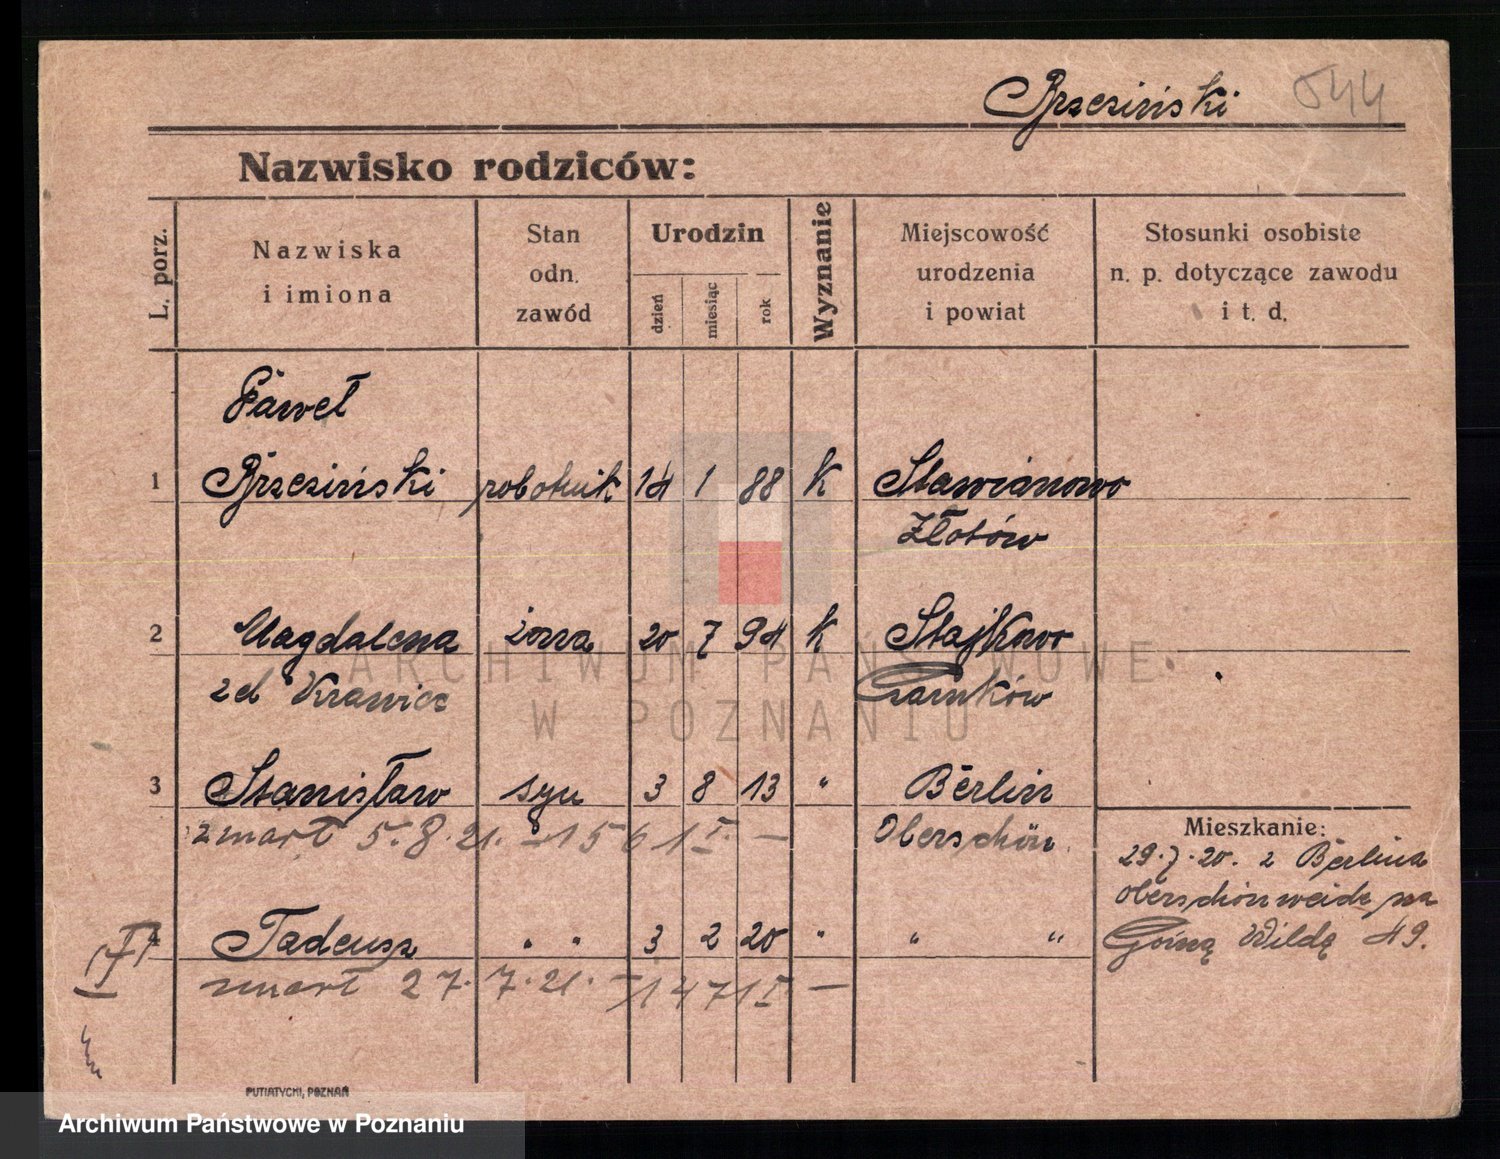 Brzeziński 544
Nazwisko rodziców:
L. porz.
Nazwiska
i imiona
Stan
odn.
zawód
Urodzin
dzień
miesiąc
rok
Wyznanie
Miejscowość
urodzenia
i powiat
Stosunki osobiste
n. p. dotyczące zawodu
i t. d.
Paweł
1 Brzeziński robotnik 14 1 88 K Sławianowo
Złotów
2 Magdalena żona 20 7 94 K Stajkowo
zd Krawiec Czarnków
3 Stanisław syn 3 8 13 " Berlin
zmarł 5.8.21. - 1561 I. - Oberschön.
4 Tadeusz " " 3 2 20 " " "
zmarł 27.7.21. - 1471 I. -
Mieszkanie:
29.7.20. z Berlina
Oberschönweide na
Górną Wildę 49.
PUTIATYCKI, POZNAŃ
ARCHIWUM PAŃSTWOWE
W POZNANIU
Archiwum Państwowe w Poznaniu